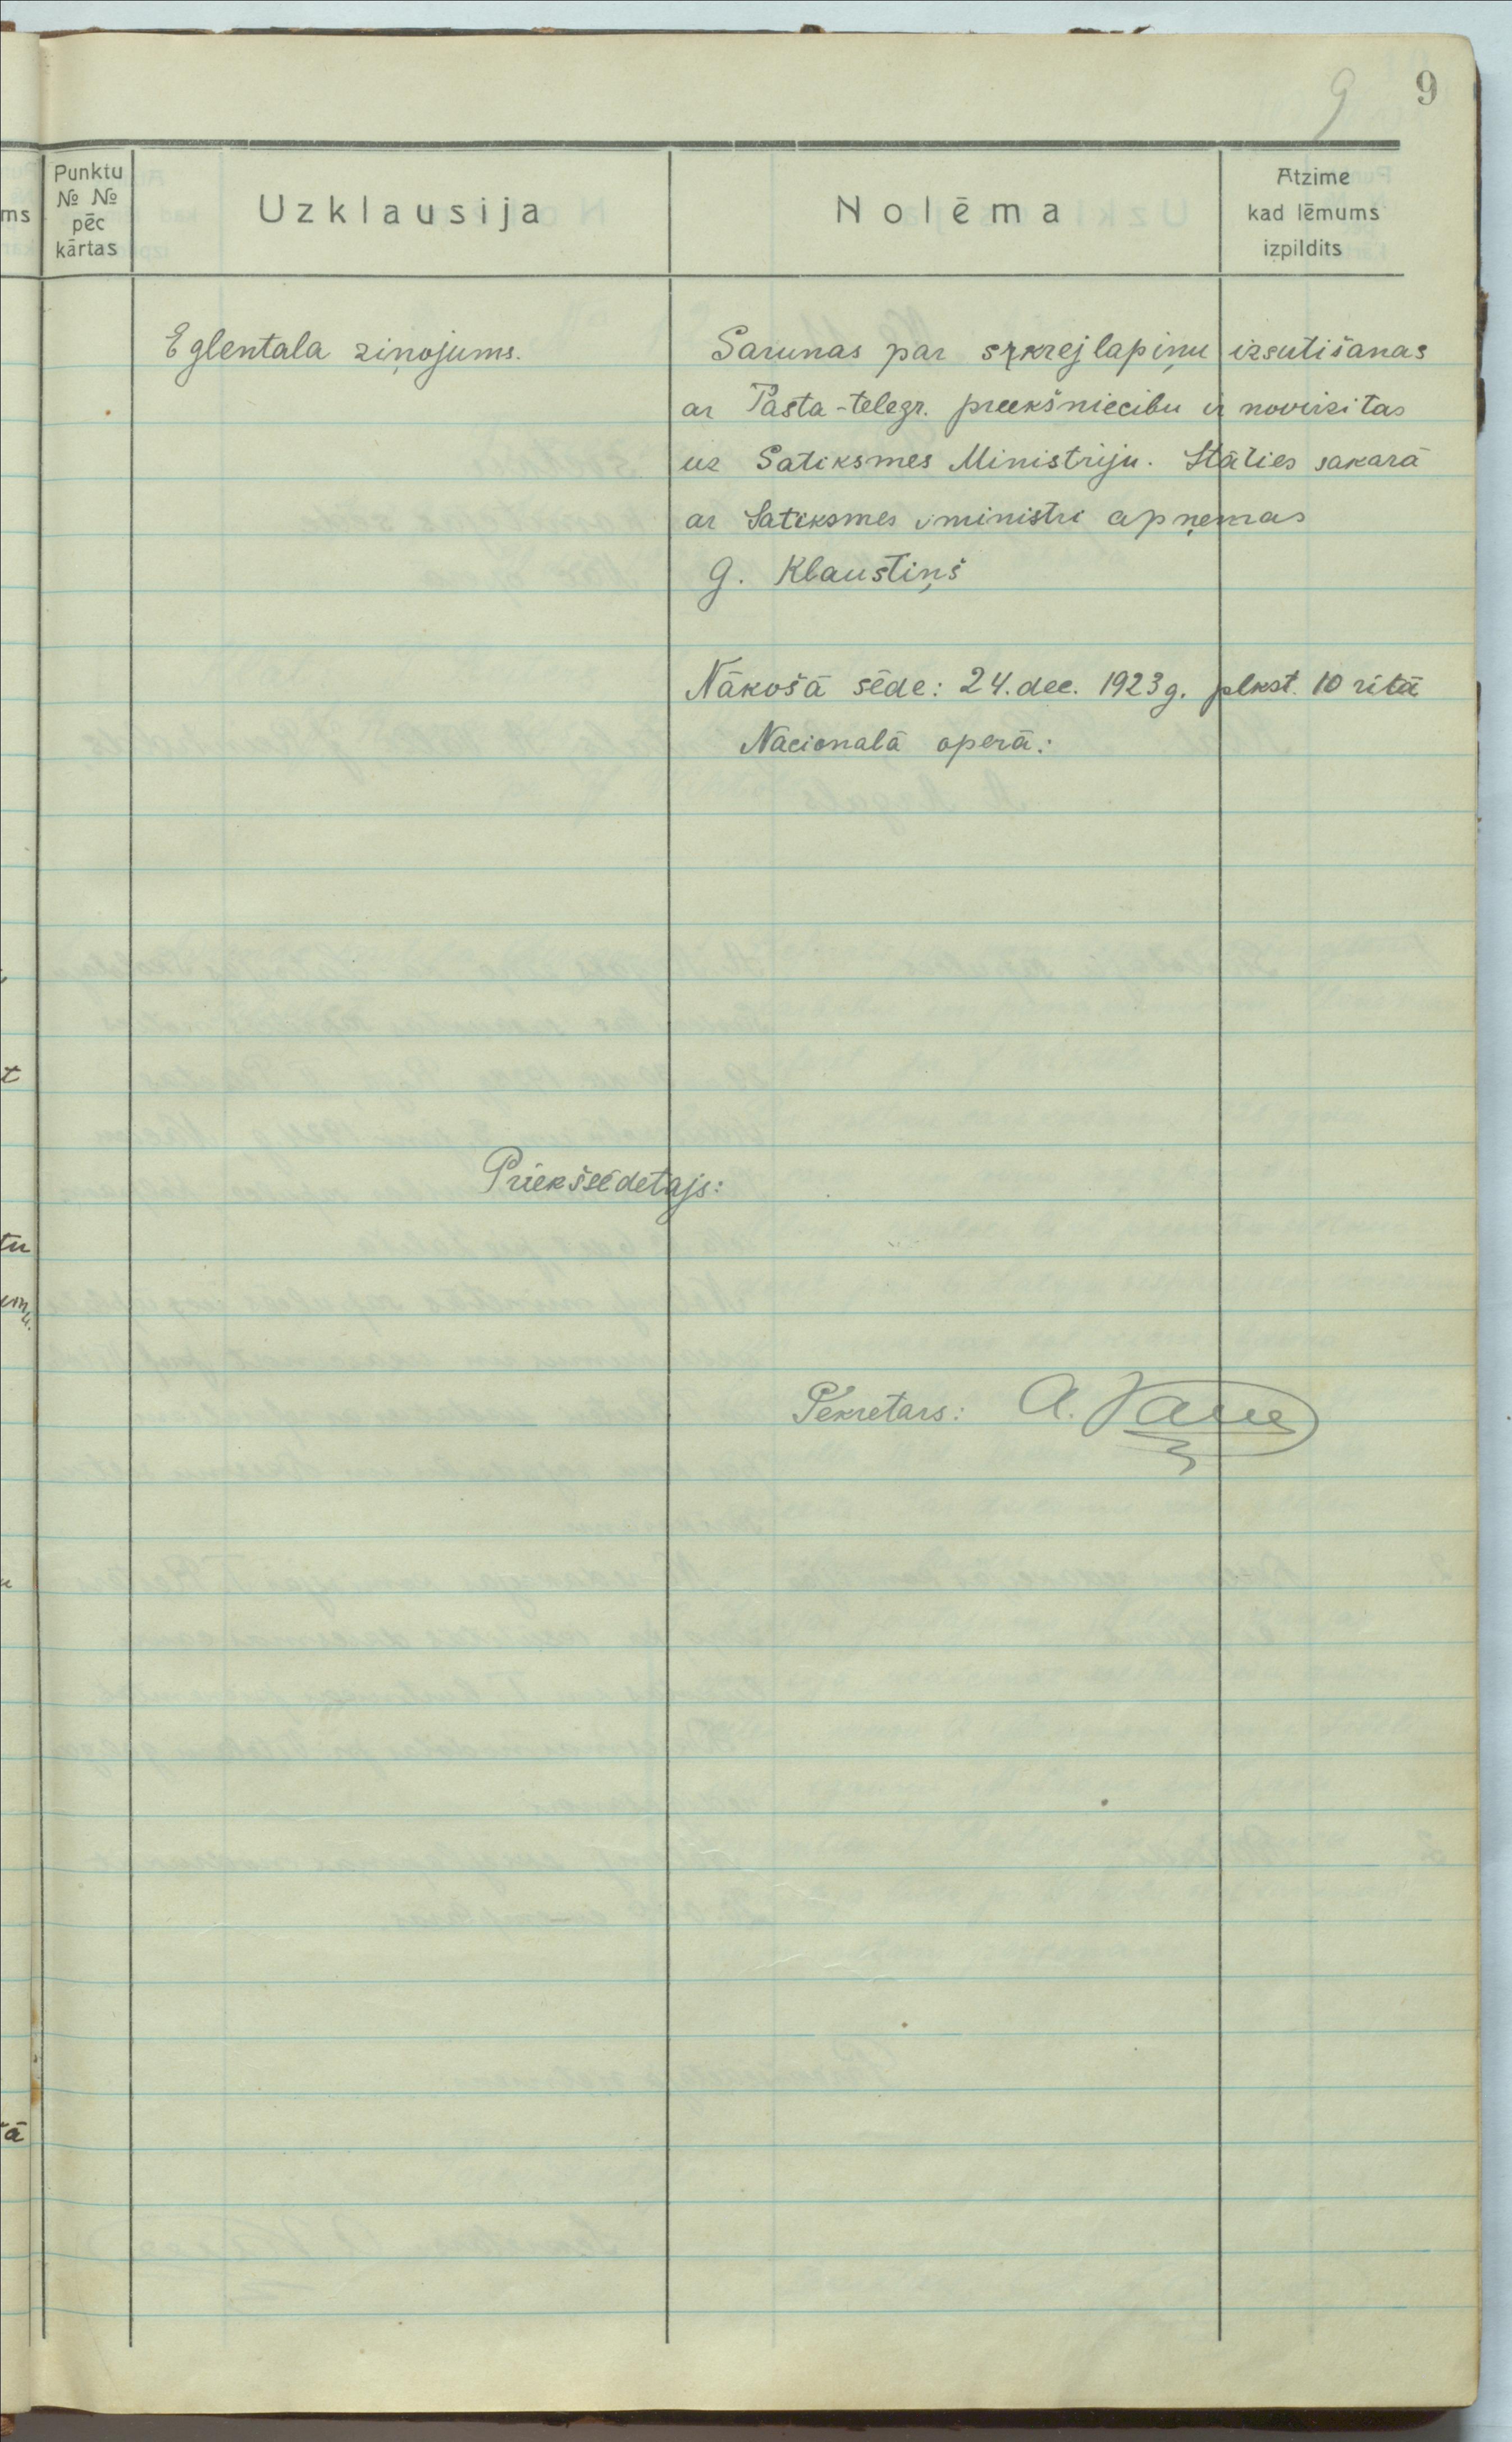 9 9
Punktu
№ №
pēc
kārtas
Uzklausija
Nolēma
Atzime
kad lēmums
izpildits
Eglentala ziņojums.
Sarunas par skrejlapiņu izsutišanas
ar Pasta-telegr. preekšniecibu ir novirzitas
uz Satiksmes Ministriju. Stāties sakarā
ar Satiksmes ministri apņemas
G. Klaustiņš
Nākošā sēde: 24. dec. 1923 g. plkst. 10 ritā
Nacionalā operā:
Priekšsēdetajs:
Sekretars: A.